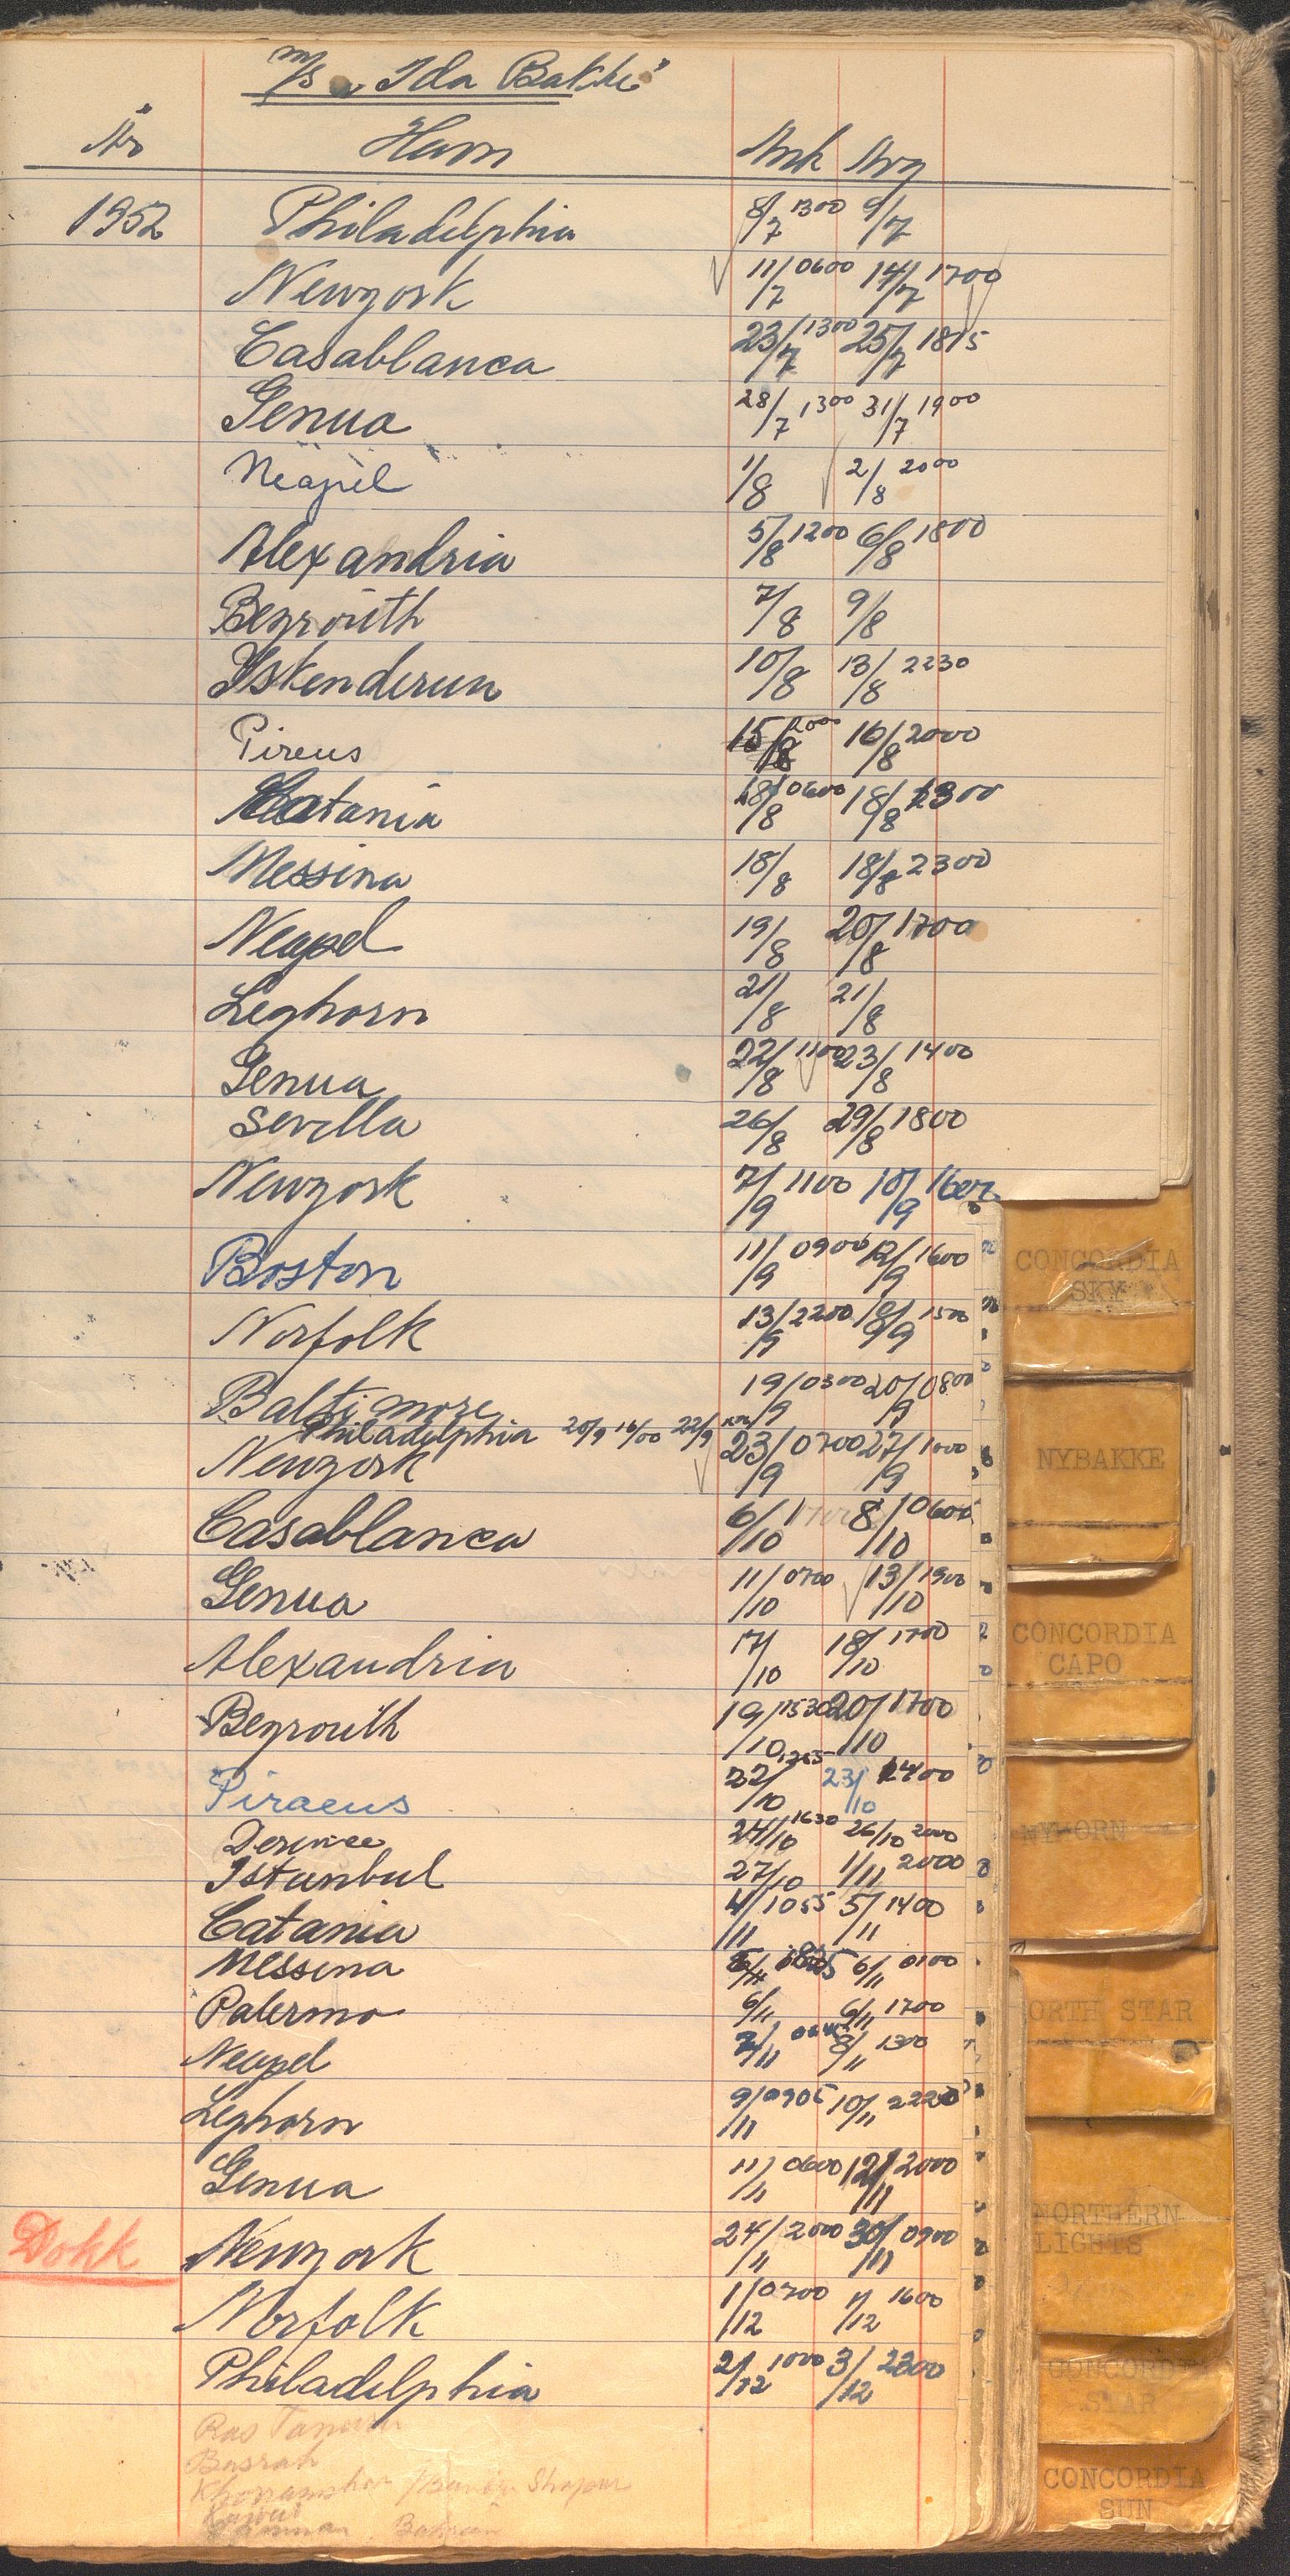 m/s "Ida Bakke"
År Havn Ank Avg
1952 Philadelphia 8/7 1300 9/7
Newyork 11/7 0600 14/7 1700
Casablanca 23/7 1300 25/7 1815
Genua 28/7 1300 31/7 1900
Neapel 1/8 2/8 2000
Alexandria 5/8 1200 6/8 1800
Beyrouth 7/8 9/8
Iskenderun 10/8 13/8 2230
Pireus 15/8 2000 16/8 2000
Catania 18/8 0600 18/8 1300
Messina 18/8 18/8 2300
Neapel 19/8 20/8 1700
Leghorn 21/8 21/8
Genua 22/8 1100 23/8 1400
Sevilla 26/8 29/8 1800
Newyork 7/9 1100 10/9
Boston 11/9 0900 12/9 1600
Norfolk 13/9 2200 1500
Baltimore 19/9 0300 20/9 0800
Philadelphia 20/9 16/00 22/9
Newyork 23/9 0700 27/9 1000
Casablanca 6/10 8/10 0600
Genua 11/10 0700 13/10 1900
Alexandria 17/10 18/10 1700
Beyrouth 19/10 1530 20/10 1700
Piraeus 22/10 1255 23/10 2400
Derince 24/10 1630 26/10 2000
Istanbul 27/10 1/11 2000
Catania 4/11 1055 5/11 1400
Messina 5/11 6/11 0100
Palermo 6/11 6/11 1700
Neapel 7/11 8/11 1300
Leghorn 9/11 0705 10/11 2220
Genua 11/11 0600 12/11 2000
Dokk Newyork 24/11 2000 30/11 0900
Norfolk 1/12 0700 1/12 1600
Philadelphia 2/12 1000 3/12 2300
Ras Tanura
Basrah
Khorramshar / Bandar Shapur
Bahrein
CONCORDIA
SKY
NYBAKKE
CONCORDIA
CAPO
NYHORN
ORTH STAR
NORTHERN
LIGHTS
CONCORDIA
STAR
CONCORDIA
SUN